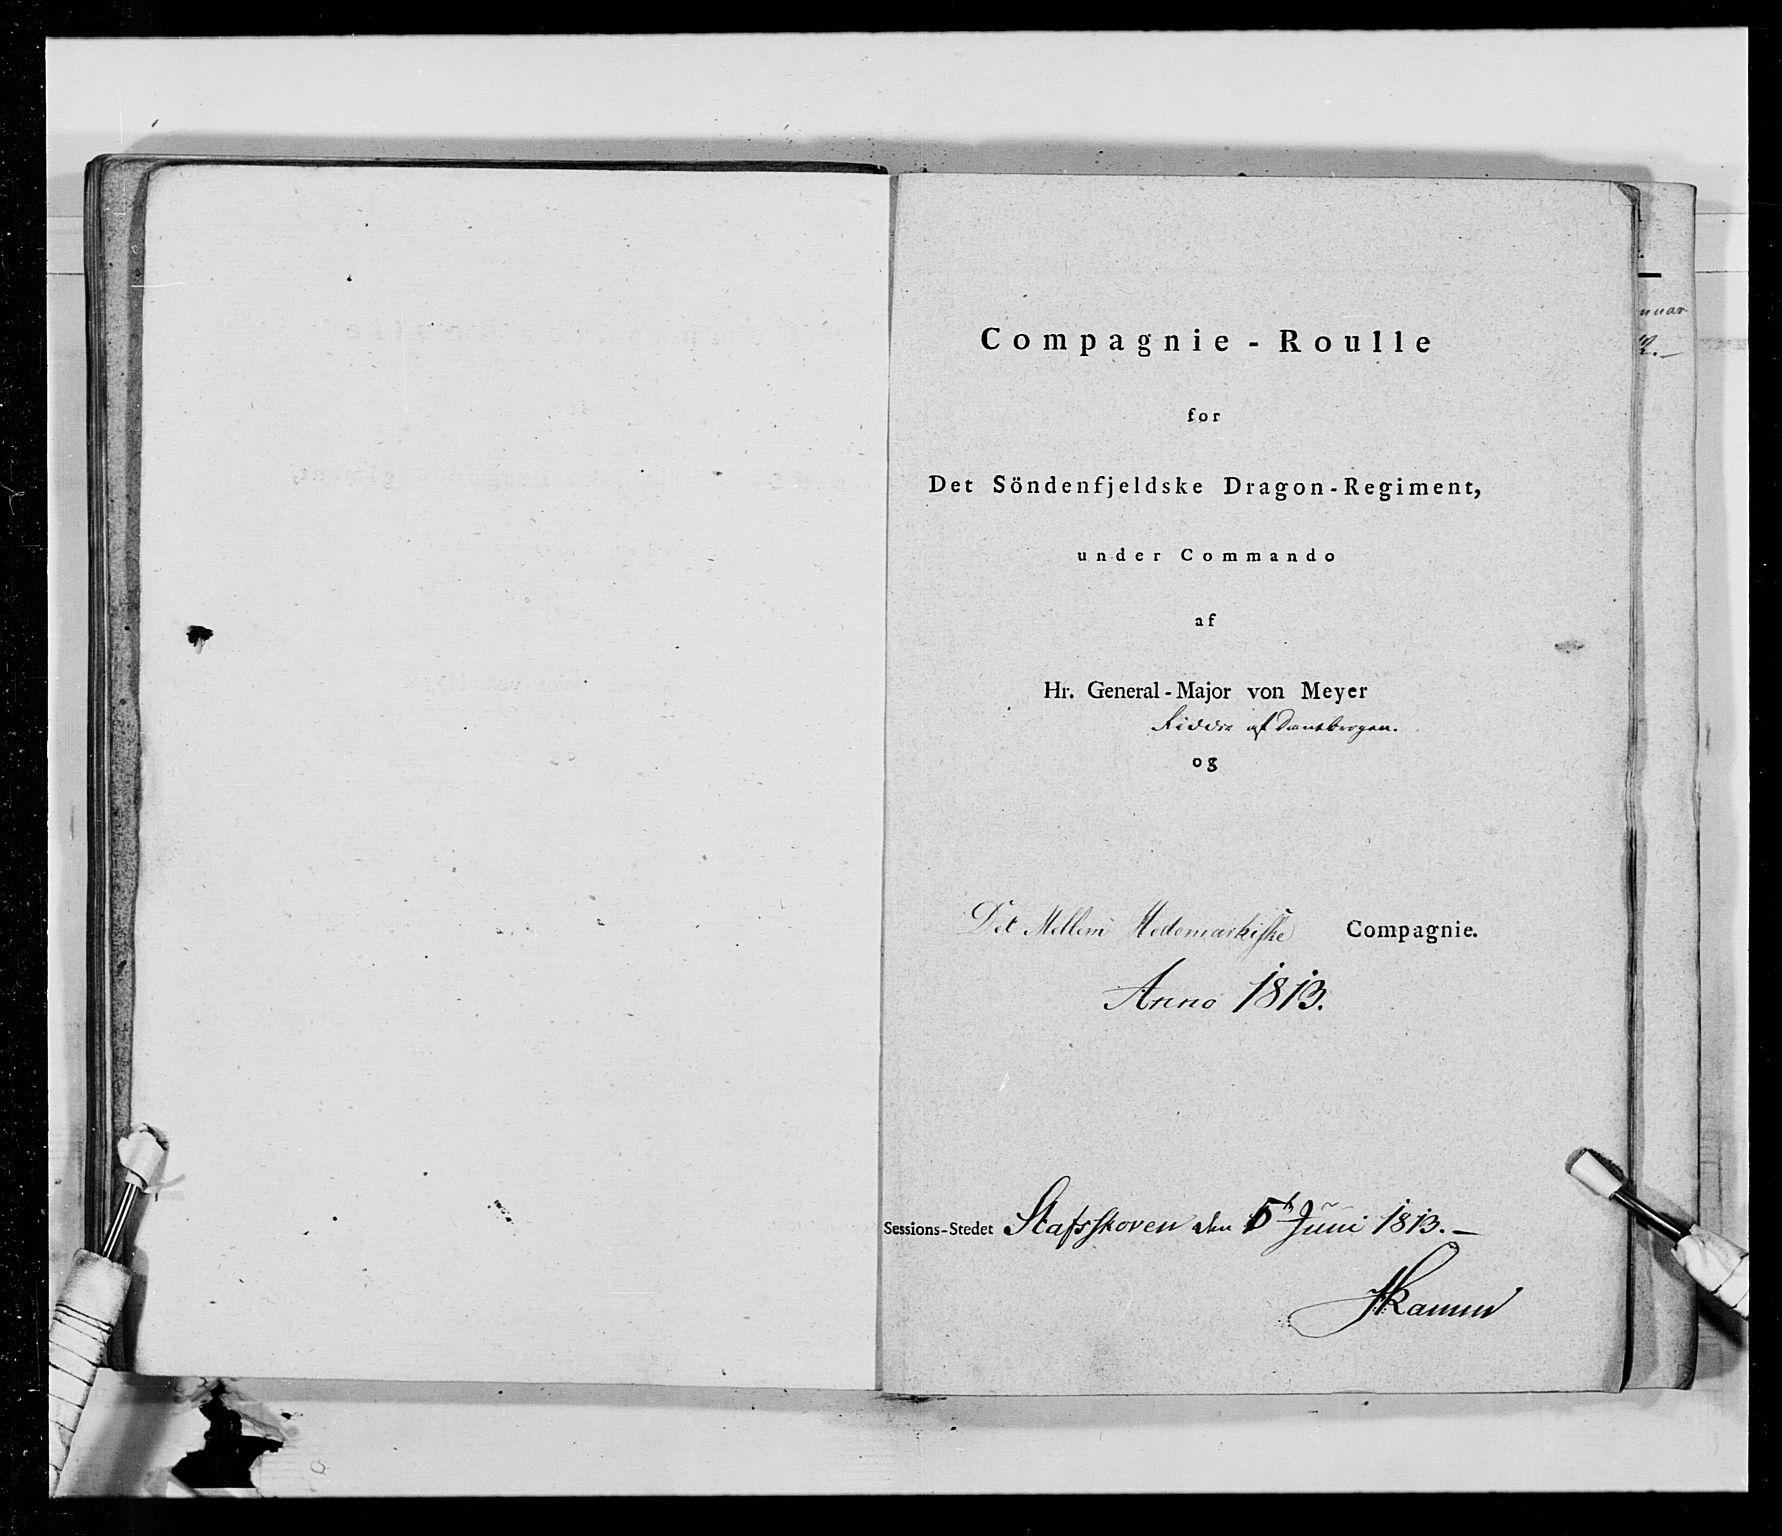 Compagnie-Roulle
for
Det Söndenfjeldske Dragon-Regiment,
under Commando
af
Hr. General-Major von Meyer
Ridder af Dannebrogen.
og
Det Mellem Hedemarkiske Compagnie.
Anno 1813.
Sessions-Stedet Stafsskoven den 5t Juni 1813.—